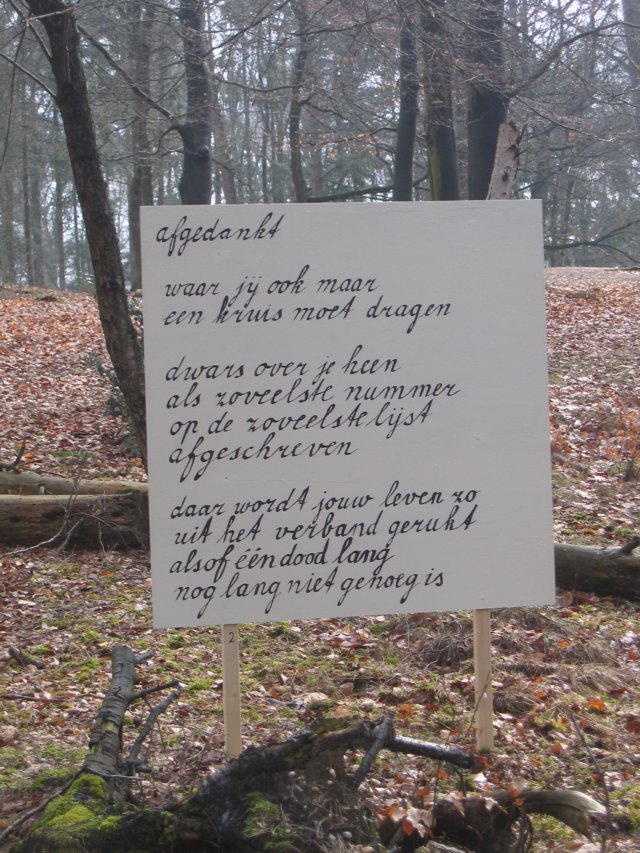 afgedankt
waar jij ook maar
een kruis moet dragen
dwars over je heen
als zoveelste nummer
op de zoveelste lijst
afgeschreven
daar wordt jouw leven zo
uit het verband gerukt
alsof één dood lang
nog lang niet genoeg is
2